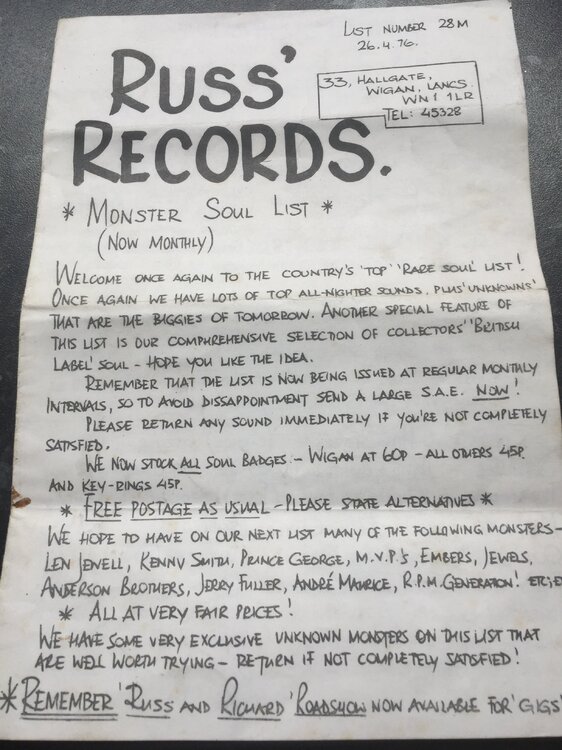 LIST NUMBER 28M
26.4.76.
RUSS'
RECORDS.
33, HALLGATE,
WIGAN, LANCS.
WN1 1LR
TEL: 45328
* MONSTER SOUL LIST *
(NOW MONTHLY)
WELCOME ONCE AGAIN TO THE COUNTRY'S 'TOP' 'RARE SOUL' LIST!
ONCE AGAIN WE HAVE LOTS OF TOP ALL-NIGHTER SOUNDS, PLUS 'UNKNOWNS'
THAT ARE THE BIGGIES OF TOMORROW. ANOTHER SPECIAL FEATURE OF
THIS LIST IS OUR COMPREHENSIVE SELECTION OF COLLECTORS' 'BRITISH
LABEL' SOUL - HOPE YOU LIKE THE IDEA.
REMEMBER THAT THE LIST IS NOW BEING ISSUED AT REGULAR MONTHLY
INTERVALS, SO TO AVOID DISSAPPOINTMENT SEND A LARGE S.A.E. NOW!
PLEASE RETURN ANY SOUND IMMEDIATELY IF YOU'RE NOT COMPLETELY
SATISFIED.
WE NOW STOCK ALL SOUL BADGES - WIGAN AT 60P - ALL OTHERS 45P.
AND KEY-RINGS 45P.
* FREE POSTAGE AS USUAL - PLEASE STATE ALTERNATIVES *
WE HOPE TO HAVE ON OUR NEXT LIST MANY OF THE FOLLOWING MONSTERS -
LEN JEWELL, KENNY SMITH, PRINCE GEORGE, M.V.P.'S, EMBERS, JEWELS,
ANDERSON BROTHERS, JERRY FULLER, ANDRÉ MAURICE, R.P.M. GENERATION! ETC; E
* ALL AT VERY FAIR PRICES!
WE HAVE SOME VERY EXCLUSIVE UNKNOWN MONSTERS ON THIS LIST THAT
ARE WELL WORTH TRYING - RETURN IF NOT COMPLETELY SATISFIED!
* REMEMBER 'RUSS AND RICHARD' ROADSHOW NOW AVAILABLE FOR 'GIGS'